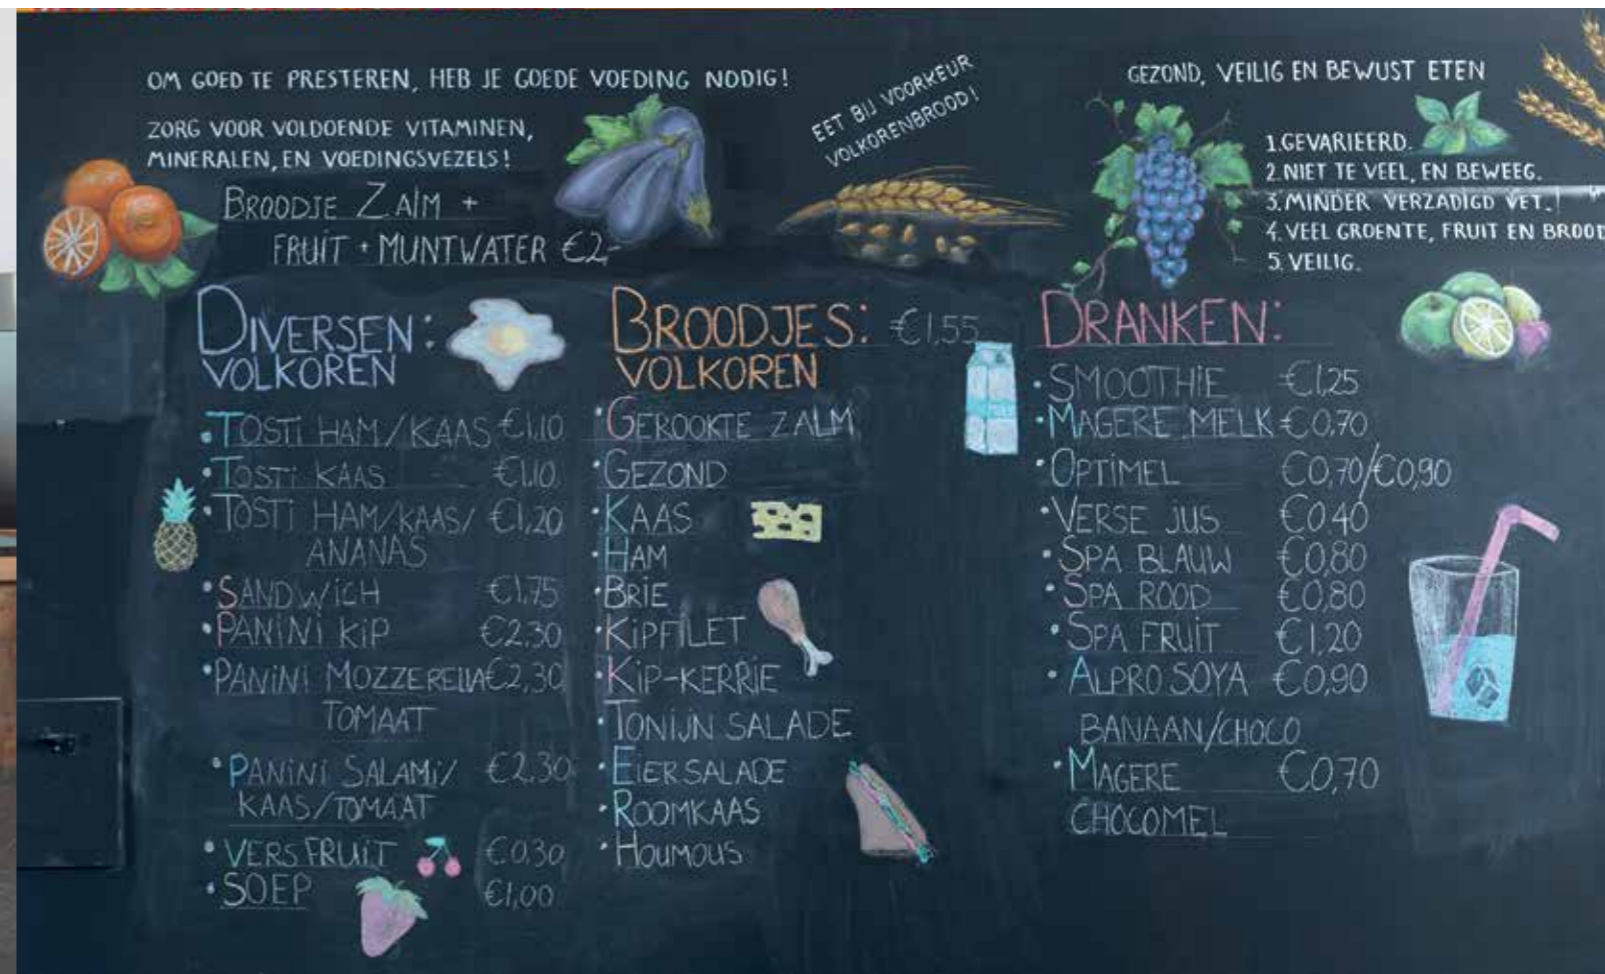 OM GOED TE PRESTEREN, HEB JE GOEDE VOEDING NODIG!
ZORG VOOR VOLDOENDE VITAMINEN,
MINERALEN, EN VOEDINGSVEZELS!
BROODJE ZALM +
FRUIT + MUNTWATER €2,-
EET BIJ VOORKEUR
VOLKORENBROOD!
GEZOND, VEILIG EN BEWUST ETEN
1. GEVARIEERD.
2. NIET TE VEEL, EN BEWEEG.
3. MINDER VERZADIGD VET.!
4. VEEL GROENTE, FRUIT EN BROOD
5. VEILIG.
DIVERSEN:
VOLKOREN
• TOSTI HAM/KAAS €1.10
• TOSTI KAAS €1.10
• TOSTI HAM/KAAS/ €1,20
ANANAS
• SANDWICH €1.75
• PANINI KIP €2.30
• PANINI MOZZERELLA €2,30
TOMAAT
• PANINI SALAMI/ €2.30
KAAS/TOMAAT
• VERS FRUIT €0.30
• SOEP €1,00
BROODJES: €1,55
VOLKOREN
• GEROOKTE ZALM
• GEZOND
• KAAS
• HAM
• BRIE
• KIPFILET
• KIP-KERRIE
• TONIJN SALADE
• EIERSALADE
• ROOMKAAS
• HOUMOUS
DRANKEN:
• SMOOTHIE €1,25
• MAGERE MELK €0,70
• OPTIMEL €0,70/€0,90
• VERSE JUS €0.40
• SPA BLAUW €0,80
• SPA ROOD €0,80
• SPA FRUIT €1,20
• ALPRO SOYA €0,90
BANAAN/CHOCO
• MAGERE €0,70
CHOCOMEL